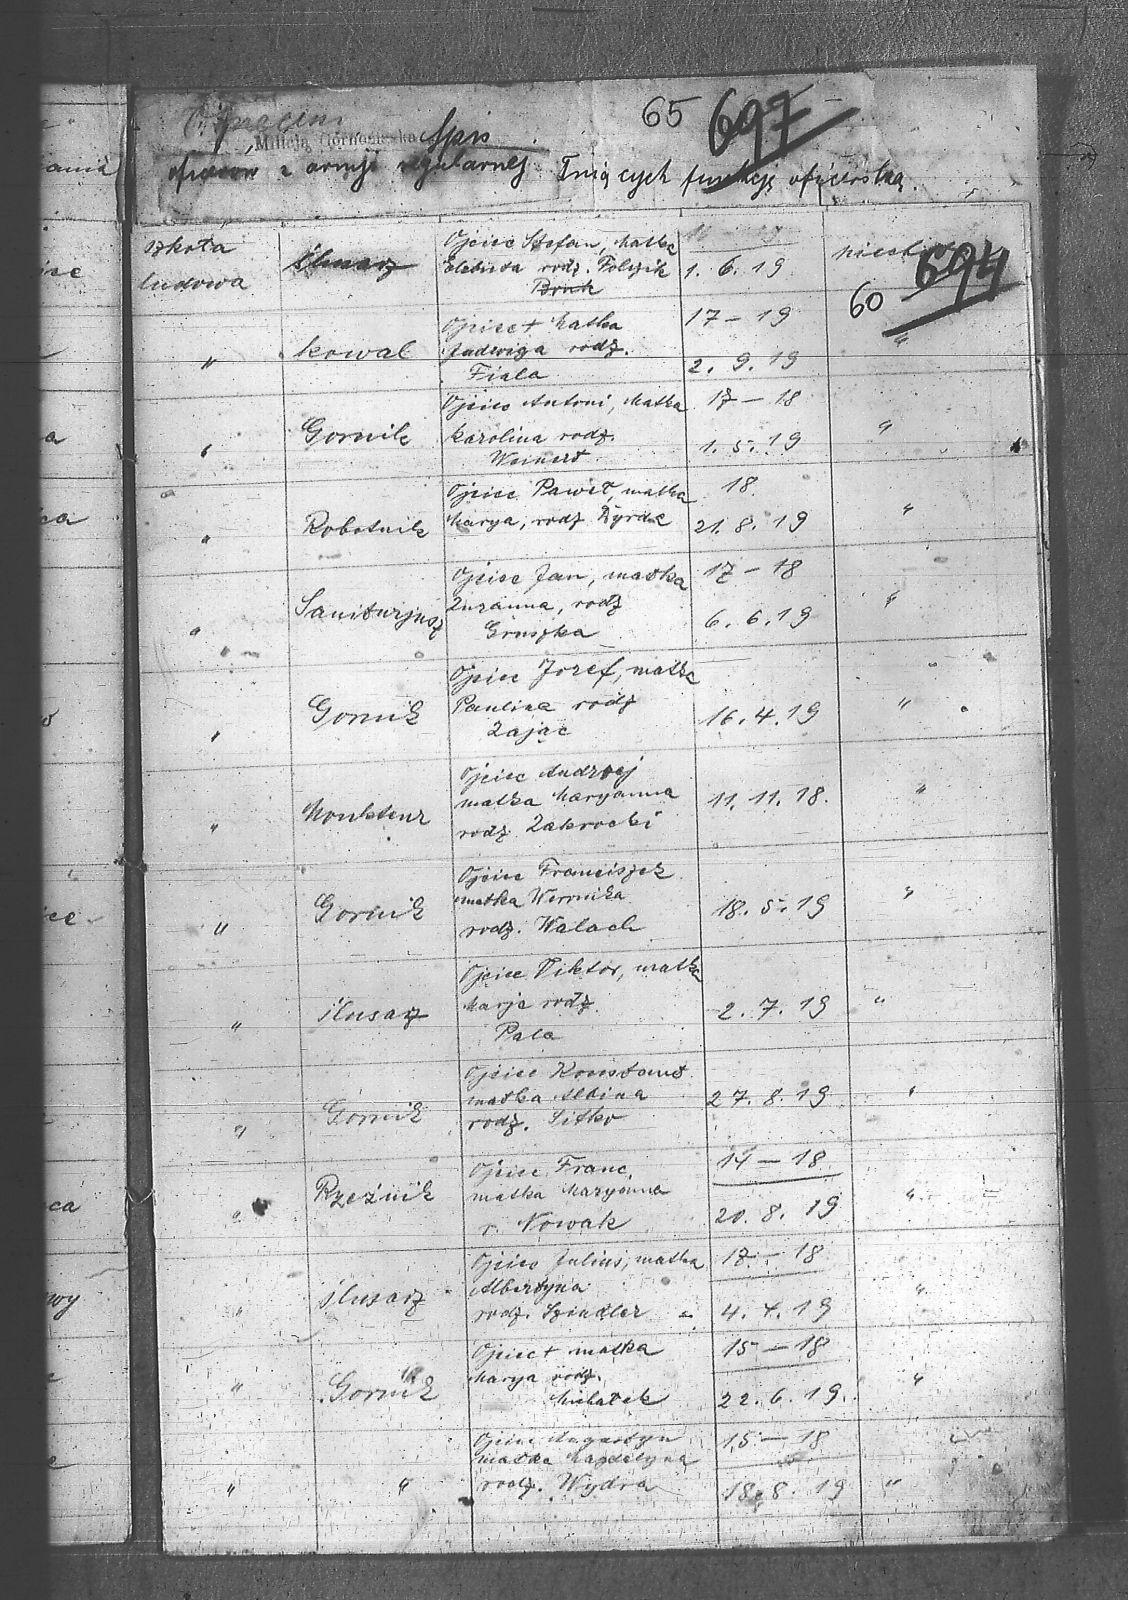 65 697
Oświęcim
Milicja Górnośląska Spis
oficerów z armji regularnej pełniących funkcję oficerską.
szkoła ludowa ślusarz Ojciec Stefan, Matka 1. 6. 19 piechota 694
Elżbieta rodz. Folczik 60
Bruk
" kowal Ojciec + Matka 17 – 19 "
Jadwiga rodz. 2. 9. 19
Fiala
" Gornik Ojciec Antoni, Matka 17 – 18 "
Karolina rodz. 1. 5. 19
Weinert
" Robotnik Ojciec Paweł, matka 18. "
Marya, rodz 21. 8. 19
" Sanitarjusz Ojciec Jan, matka 17 – 18 "
Zuzanna, rodz 6. 6. 19
Gruszka
" Gornik Ojciec Jozef, matka "
Paulina rodz 16. 4. 19
Zając
" Monkteur Ojciec Andrzej "
matka Maryanna 11. 11. 18.
rodz. Zakrocki
" Gornik Ojciec Franciszek "
matka Weronika 18. 5. 19
rodz. Walach
" ślusarz Ojciec Viktor, matka "
Marja rodz. 2. 7. 19
Pala
" Gornik Ojciec Konstant "
matka Albina 27. 8. 19
rodz. Sitko
" Rzeźnik Ojciec Franc, 14 – 18 "
matka Maryanna
r. Nowak 20. 8. 19
" ślusarz Ojciec Julius, matka 17 – 18 "
Albertyna
rodz. Szindler 4. 4. 19
" Gornik Ojciec + matka 15 – 18 "
Marya rodz.
Michatek 22. 6. 19.
" " Ojciec Augustyn 15 – 18
matka Magdalyna
rodz. Wydra 18. 8. 19 "